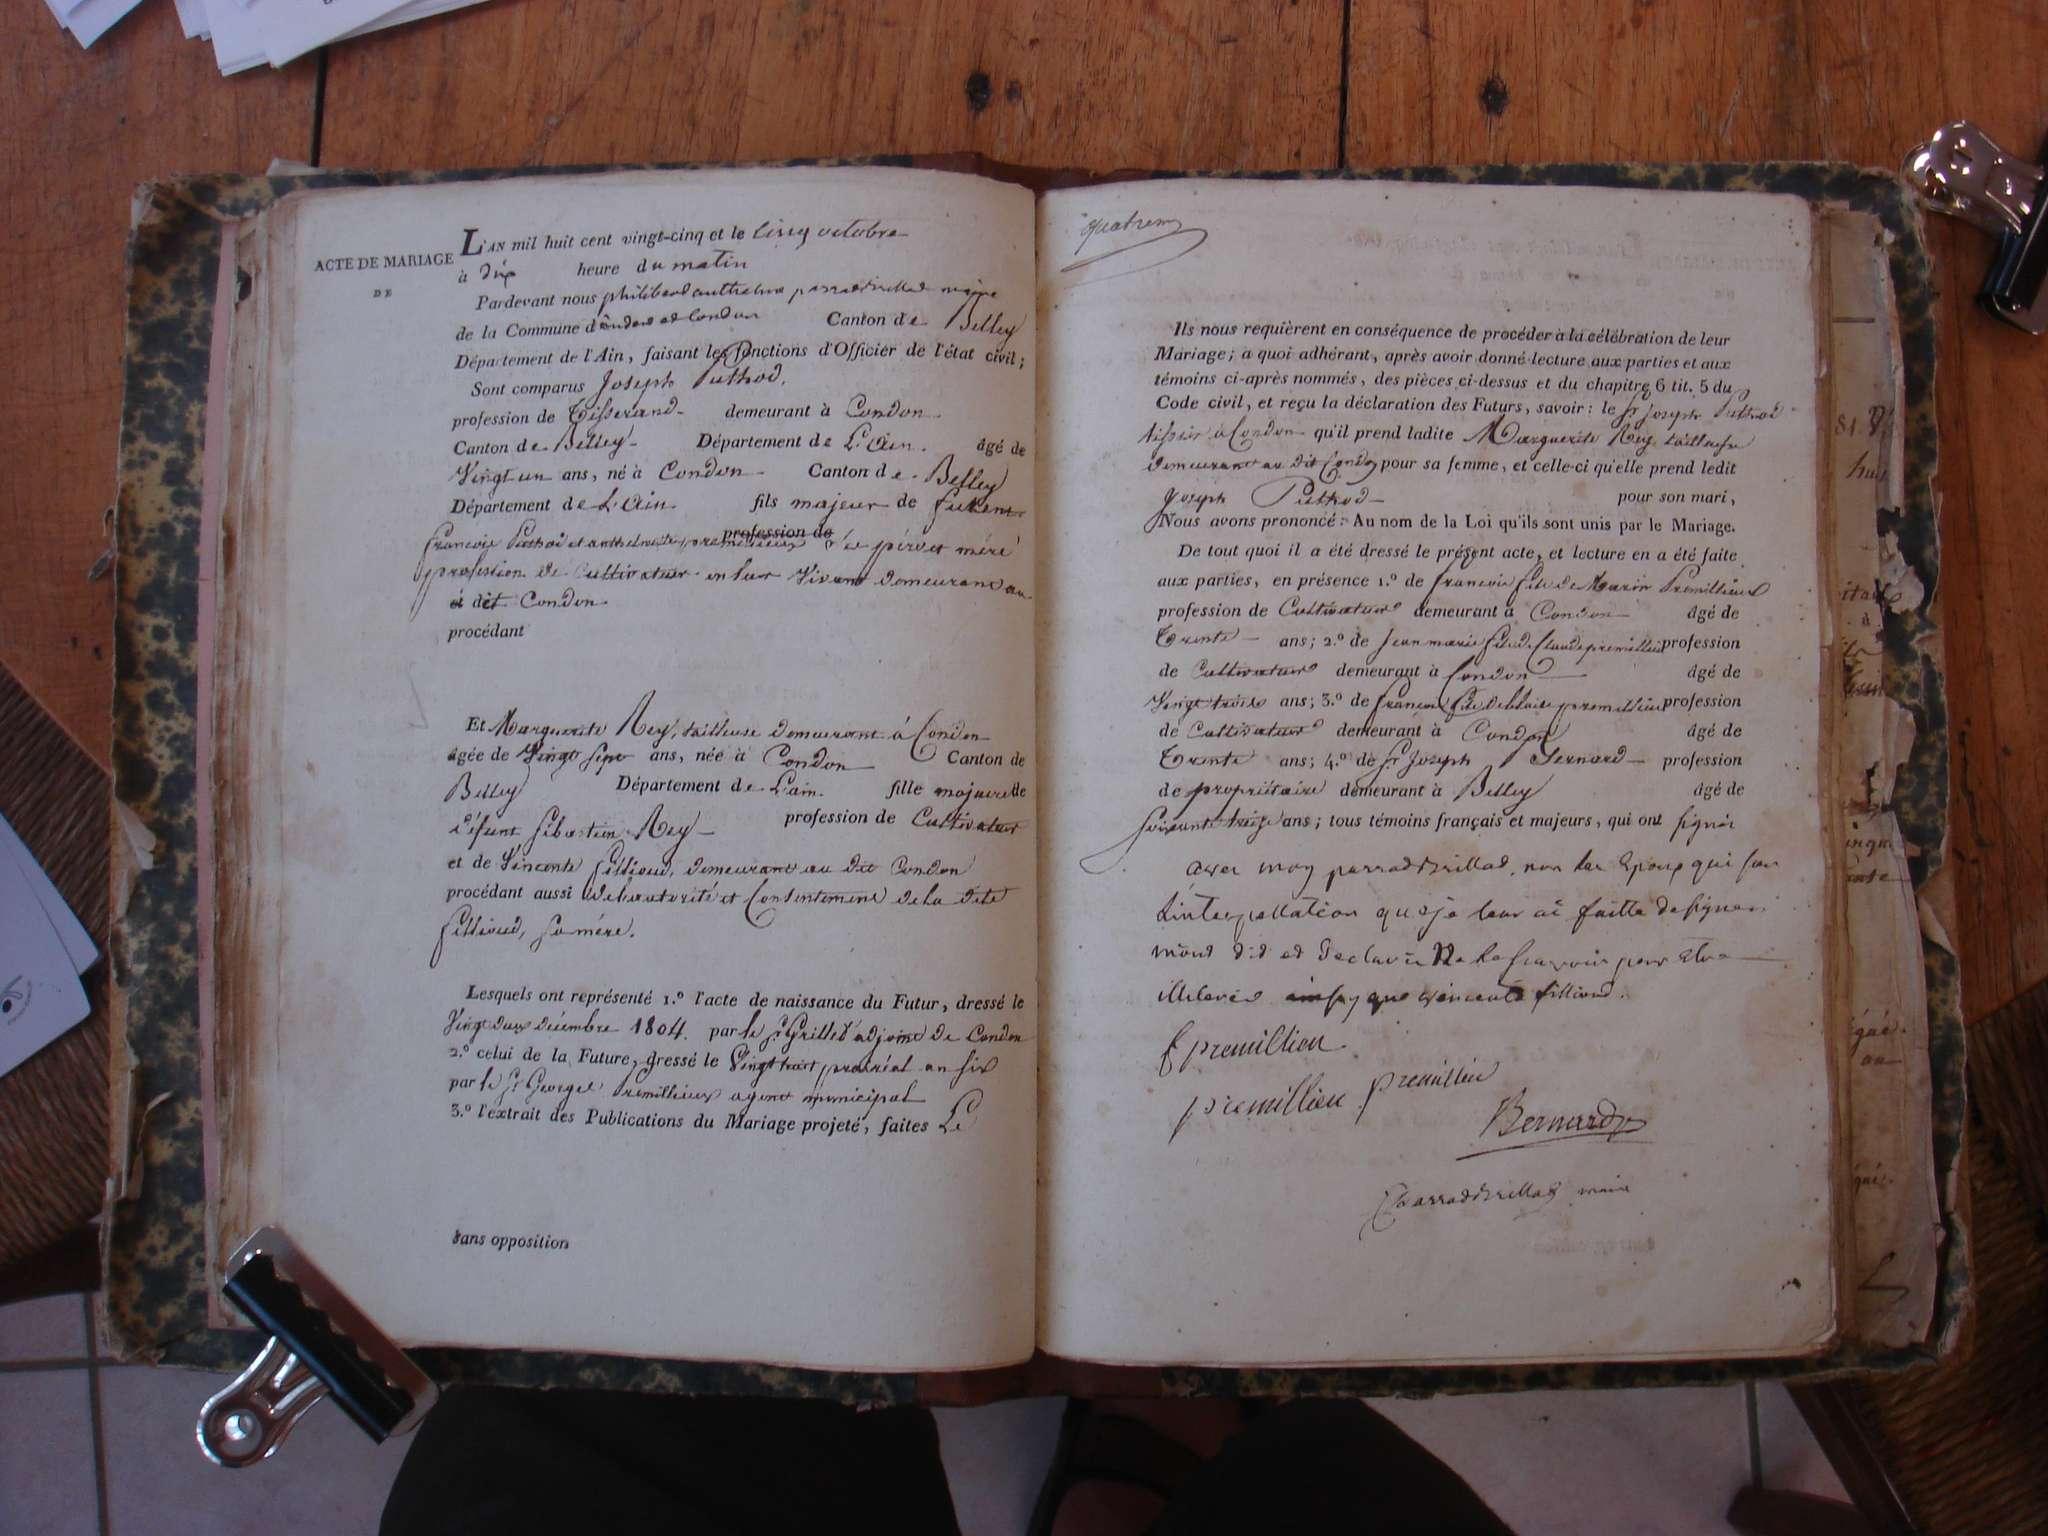 ACTE DE MARIAGE
DE
L'AN mil huit cent vingt-cinq et le cinq octobre
à dix heure du matin
Pardevant nous philibert anthelme parradbrillat maire
de la Commune d'andert et Condon Canton de Belley
Département de l'Ain, faisant les fonctions d'Officier de l'état civil;
Sont comparus Joseph Puthod,
profession de Tisserand demeurant à Condon
Canton de Belley Département de L'Ain. âgé de
Vingt un ans, né à Condon Canton de Belley
Département de L'Ain fils majeur de
profession de
francois Puthod et anthelmette premillieux père et mère
profession de Cultivateur en leur Vivant demeurant au
dit Condon
procédant
Et Marguerite Rey, tailleuse demeurant à Condon
âgée de Vingt sept ans, née à Condon Canton de
Belley Département de L'ain. fille majeure de
défunt Sébastien Rey profession de Cultivateur
et de Vincente fillioud, demeurant au dit Condon
procédant aussi de l'autorité et Consentement de la dite
fillioud, sa mère.
Lesquels ont représenté 1.º l'acte de naissance du Futur, dressé le
Vingt deux décembre 1804. par le Sr Grillet adjoint de Condon
2.º celui de la Future, dressé le Vingt huit prairéal an six
par le Sr George Premillieux agent municipal
3.º l'extrait des Publications du Mariage projeté, faites Le
sans opposition
Ils nous requièrent en conséquence de procéder à la célébration de leur
Mariage; a quoi adhérant, après avoir donné lecture aux parties et aux
témoins ci-après nommés, des pièces ci-dessus et du chapitre 6 tit. 5 du
Code civil, et reçu la déclaration des Futurs, savoir: le Sr Joseph Puthod
tissier à Condon qu'il prend ladite Marguerite Rey tailleuse
demeurant au dit Condon pour sa femme, et celle-ci qu'elle prend ledit
Joseph Puthod pour son mari,
Nous avons prononcé: Au nom de la Loi qu'ils sont unis par le Mariage.
De tout quoi il a été dressé le présent acte, et lecture en a été faite
aux parties, en présence 1.º de francois fils de Marin Premillieux
profession de Cultivateur demeurant à Condon âgé de
Trente ans; 2.º de Jean marie fils de Claude premillieu profession
de Cultivateur demeurant à Condon âgé de
Vingt trois ans; 3.º de francois fils de blaise premillieu profession
de Cultivateur demeurant à Condon âgé de
Trente ans; 4.º de Sr Joseph Bernard profession
de propriétaire demeurant à Belley âgé de
soixante treize ans; tous témoins français et majeurs, qui ont signés
avec moy parradbrillat, non les Epoux qui sur
Linterpellation que je leur ai faitte de signer
mont dit et declaré Ne le scavoir pour etre
illiterés insy que vincente fillioud.
f premillieu
premillieu premillieu
Bernard
Parradbrillat maire